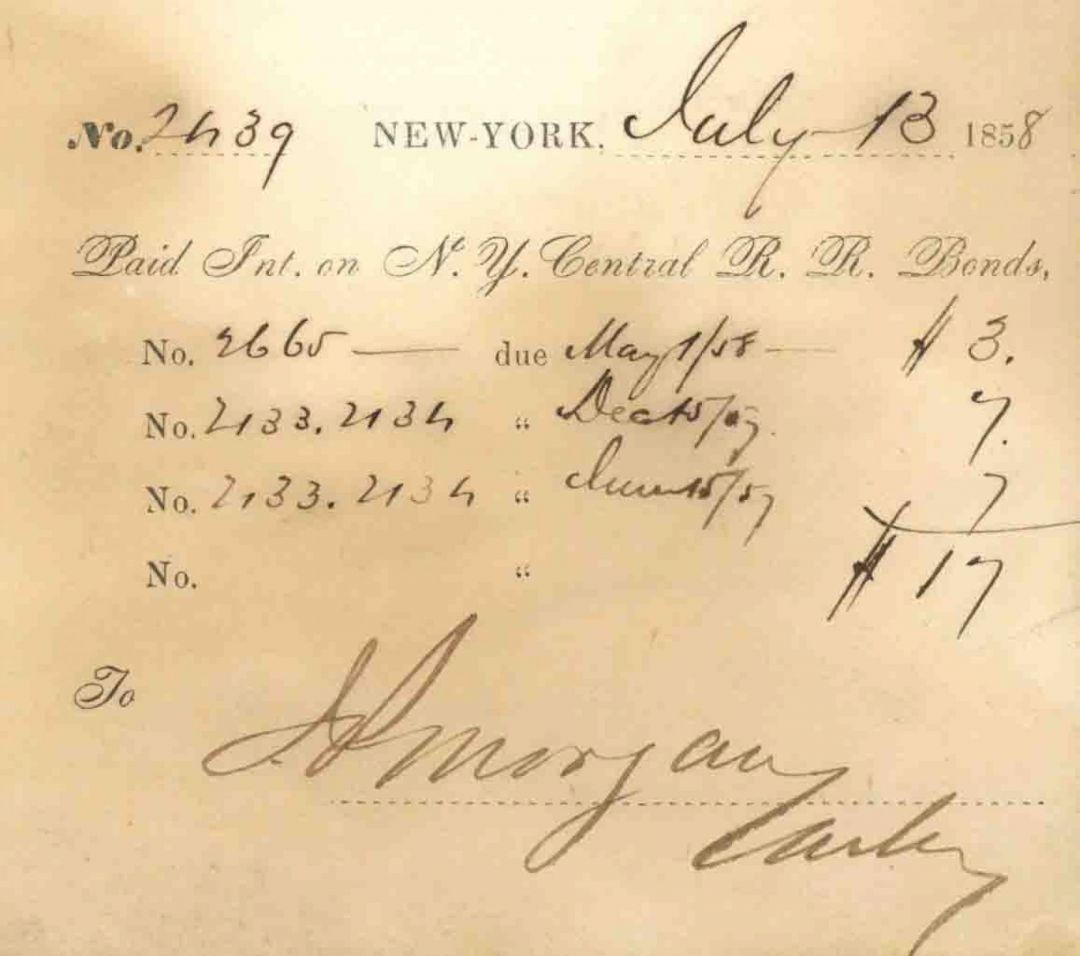 No. 2439 NEW-YORK, July 13 1858
Paid Int. on N. Y. Central R. R. Bonds,
No. 2665 — due May 1/58 — $ 3.
No. 2133. 2134 “ Dec 15/57. 7.
No. 2133. 2134 “ June 15/57 7
No. “ $ 17
To
J P Morgan